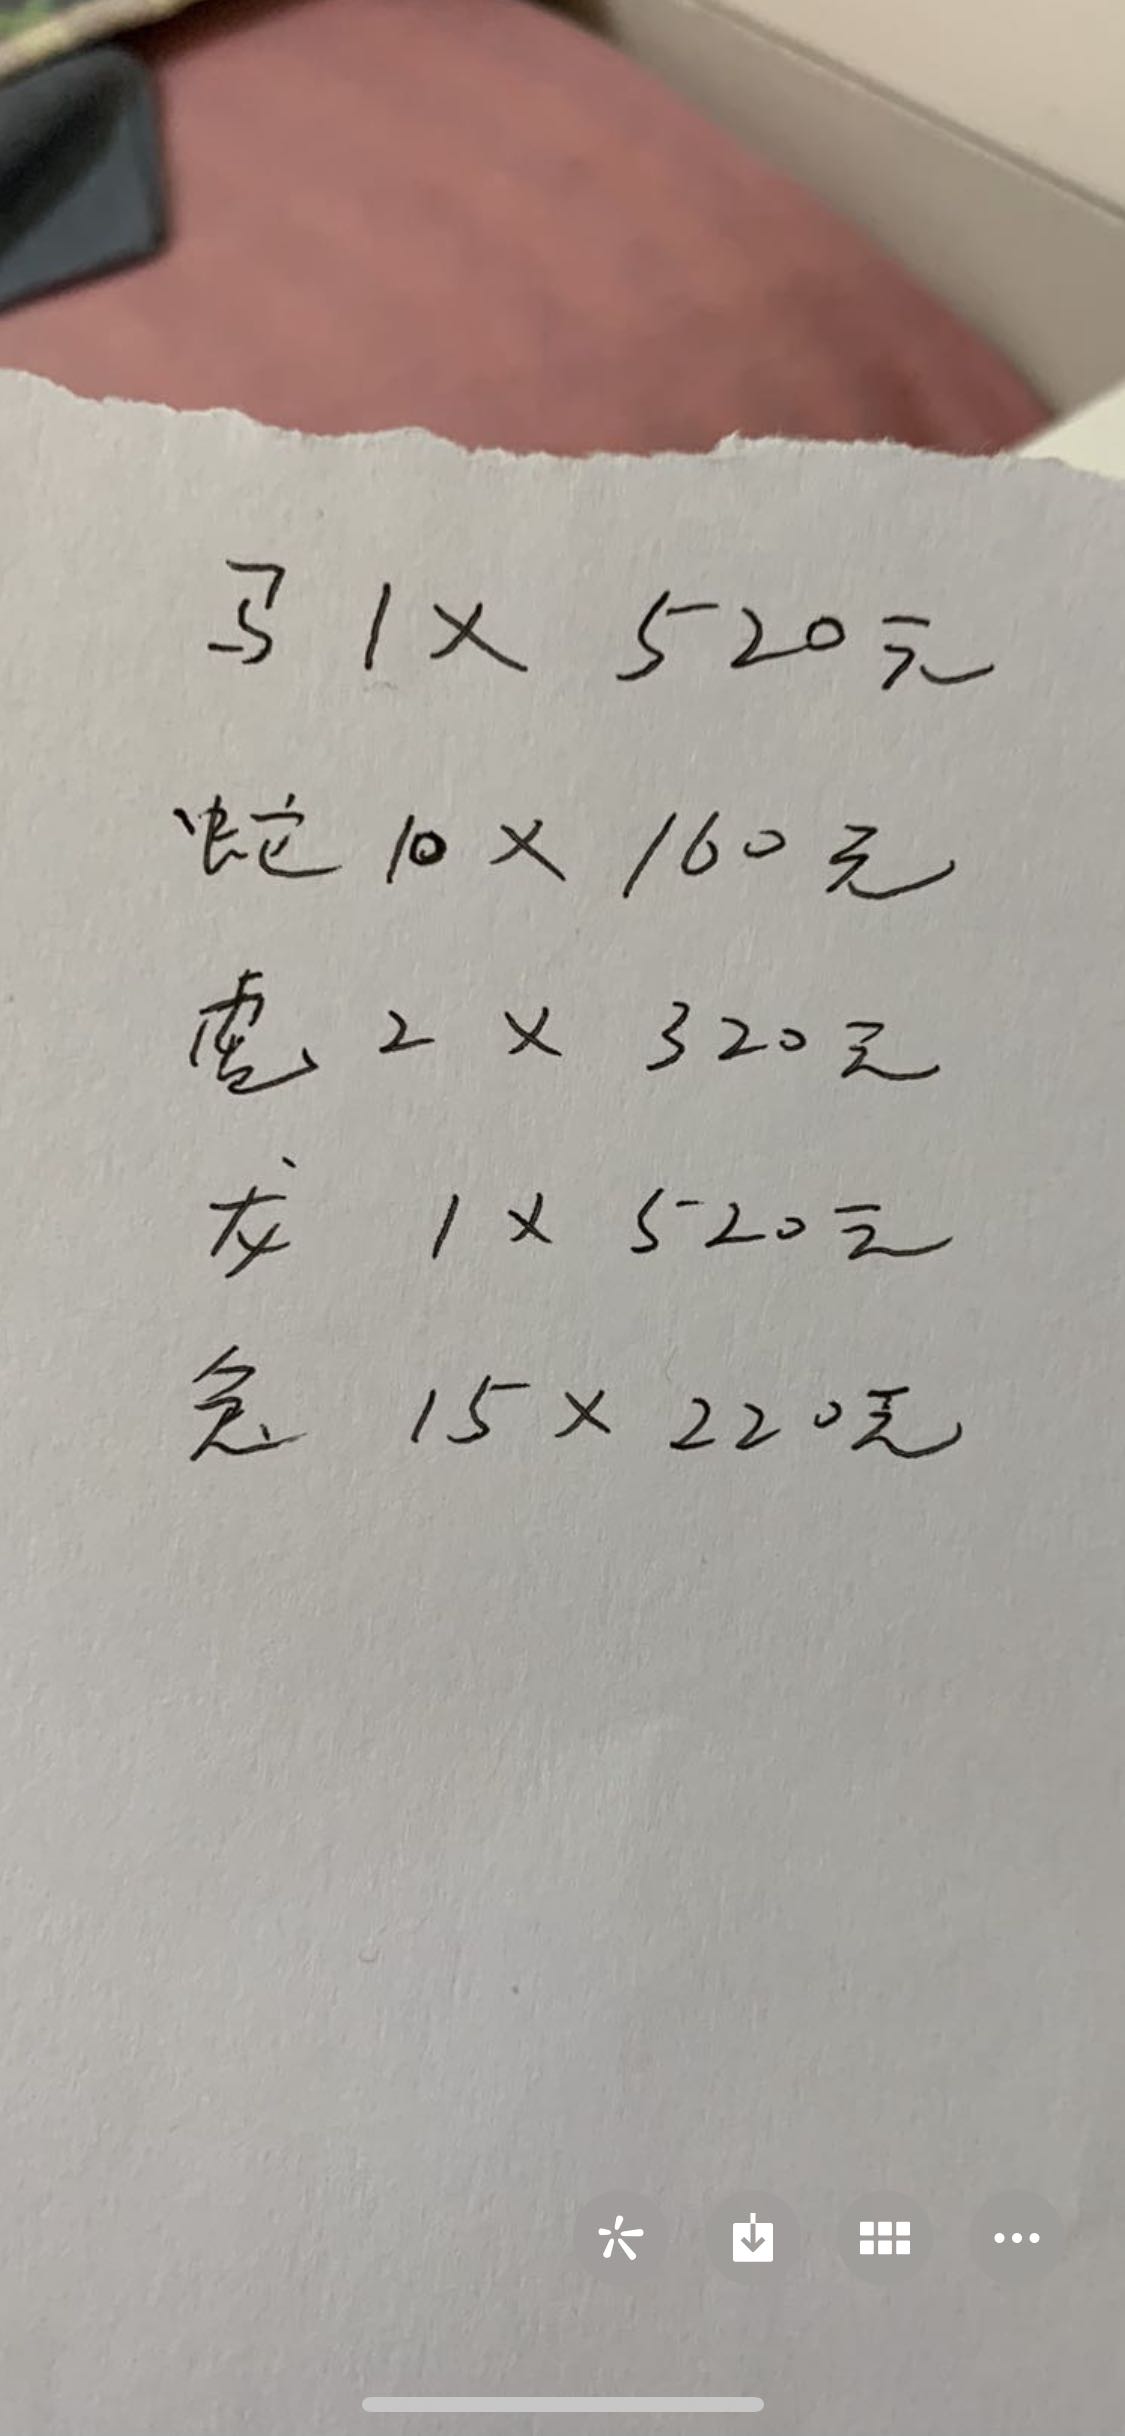 马 1 × 520元
蛇 10 × 160元
虎 2 × 320元
龙 1 × 520元
15 × 220元